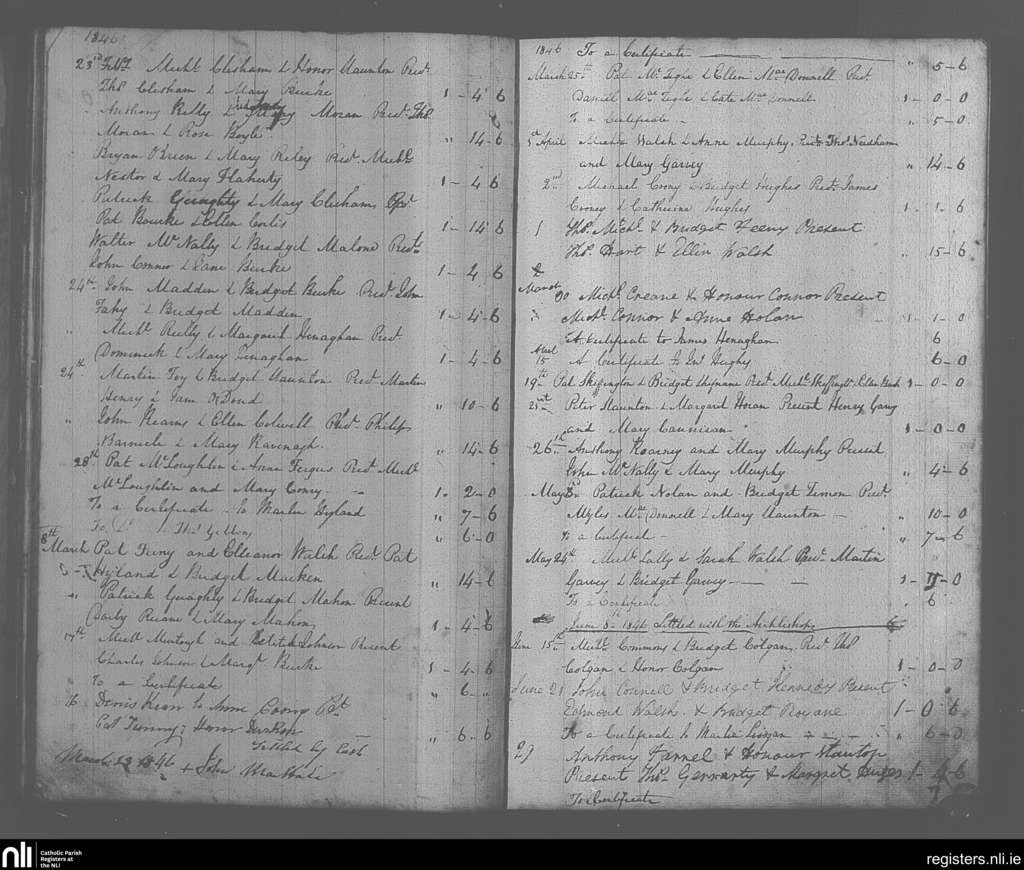 1846
23rd Feby Michl Clisham & Honor Staunton Prest
Ths Clisham & Mary Burke 1 - 4 6
Anthony Reilly & Mary Moran Prest Ths
Moran & Rose Boyle " 14-6
Bryan O'Brien & Mary Riley Prest Michl
Nestor & Mary Flaherty 1 - 4 6
Patrick Geraghty & Mary Clisham Prst
Pat Bourke & Ellen Corlis 1 - 14 6
Walter McNally & Bridget Malone Prest
John Connor & Jane Burke 1 - 4 6
24th John Madden & Bridget Burke Prest John
Fahy & Bridget Madden 1 - 4 - 6
" Michl Reilly & Margaret Henaghan Prest
Dominick & Mary Henaghan 1 - 4 - 6
24th Martin Foy & Bridget Staunton Prest Martin
Henry & O'Dowd " 10 - 6
" John Kearns & Ellen Colwell Prest Philip
& Mary Kavinagh " 14 - 6
28th Pat McLoughlin & Anne Fergus Prest Michl
McLoughlin and Mary Conry 1 " 2 - 0
To a Certificate - to Martin Hyland " 7 - 6
To Do Ths Gibbons " 6 - 0
8th March Pat Feeny and Elleanor Walsh Prest Pat
Hyland & Bridget Macken " 14 - 6
" Patrick Geraghty & Bridget Mahon Present
Darby Ruane & Mary Mahon 1 - 4 - 6
17th Michl and Johnson Present
Charles Johnson & Margt Burke 1 - 4 - 6
To a Certificate " 6 - "
Denis Kean to Anne Conry Pt
Pat & Honor " 6 - 6
Settled by Cash
March 23 1846 + John MacHale
1846 To a Certificate " 5 - 6
March 25th Pat McTighe & Ellen MacDonnell Prest
Daniel MacTighe & Cate MacDonnell 1 - 0 - 0
To a Certificate - " 5 - 0
1st April Walsh & Anne Murphy. Prest Thos Needham
and Mary Garvey " 14 - 6
2nd Michael Coony & Bridget Hughes Prest James
Cooney & Catherine Hughes 1 - 1 - 6
Ths Michl & Bridget Feeny Present
Ths Hart & Ellin Walsh 15 - 6
30 Michl Creane & Honour Connor Present
Michl Connor & Anne Holan 1 - 1 - 0
A Certificate to James Henaghan 6
15 A Certificate to Jno Hughes 6 - 0
19th Pat Skiffington & Bridget Prest Michl Skiffington 1 - 0 - 0
21st Peter Staunton & Margaret Horan Present Henry Garvy
and Mary Cannisan 1 - 0 - 0
26th Anthony Kearney and Mary Murphy Present
John McNally & Mary Murphy " 4 - 6
May Patrick Nolan and Bridget Timon Prest
Myles McDonnell & Mary Staunton " 10 - 0
To a Certificate - " 7 - 6
May 24th Michl Lally & Sarah Walsh Prest Martin
Garvey & Bridget Garvey - 1 - - 0
To a Certificate 6
June 8th 1846 Settled with the Archbishop
June 15th Michl Commons & Bridget Colgan Prest Ths
Colgan & Honor Colgan 1 - 0 - 0
June 21 John Connell & Bridget Kennedy Present
Edmond Walsh & Bridget Royane 1 - 0 6
To a Certificate to Martin " 6 - 0
27 Anthony Farnel & Honour Stanton
Present Ths Gerraarty & Margret 1 - 4 - 6
To Certificate 7
nli
Catholic Parish
Registers at
the NLI
registers.nli.ie